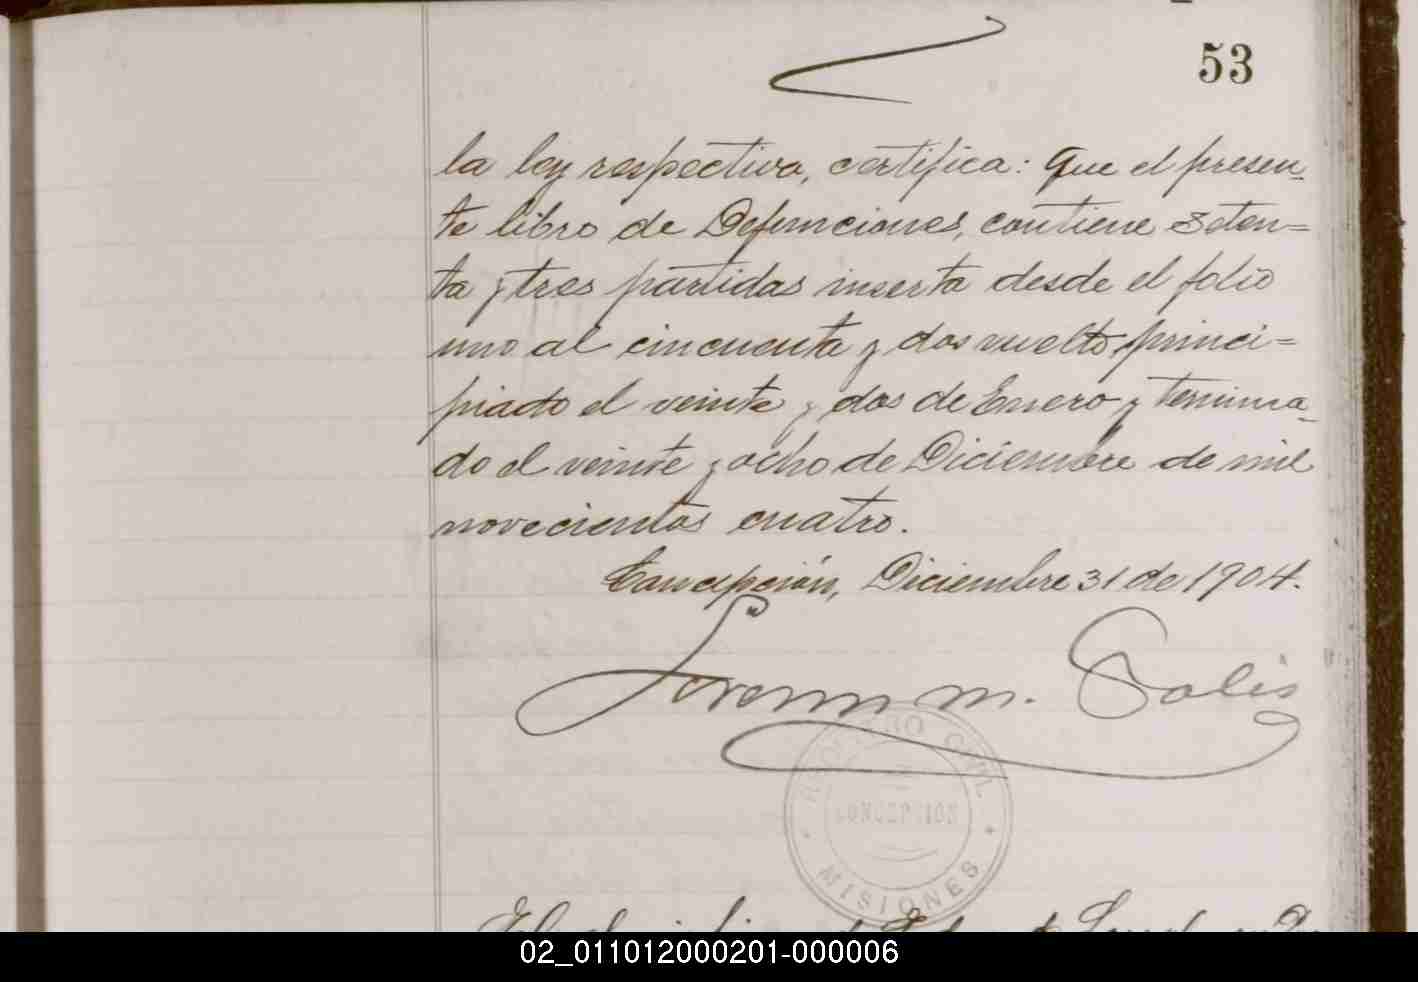 53
la ley respectiva, certifica: Que el presen-
te libro de Defunciones, contiene seten=
ta y tres partidas inserta desde el folio
uno al cincuenta y dos vuelto, princi=
piado el veinte y dos de Enero y termina-
do el veinte y ocho de Diciembre de mil
novecientos cuatro.
Concepción, Diciembre 31 de 1904.
m. Solis
REGISTRO CIVIL
CONCEPCION
MISIONES
02_011012000201-000006